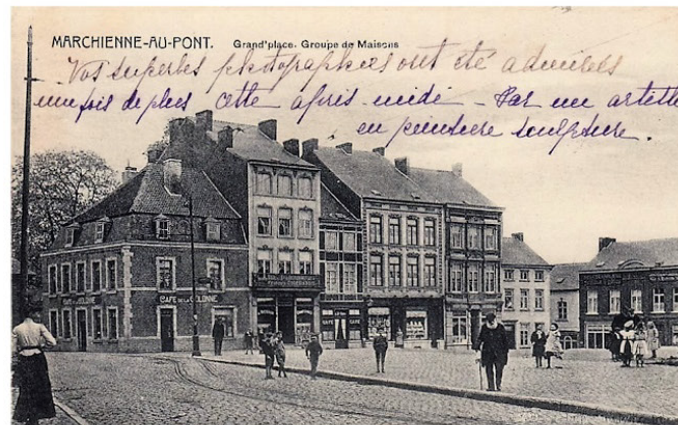 MARCHIENNE-AU-PONT. Grand'place. Groupe de Maisons
Vos superbes photographies ont été admirées
une fois de plus cette après-midi - Par une artiste
en peinture sculpture.
CAFE DE LA COLONNE
CAFE
CAFE